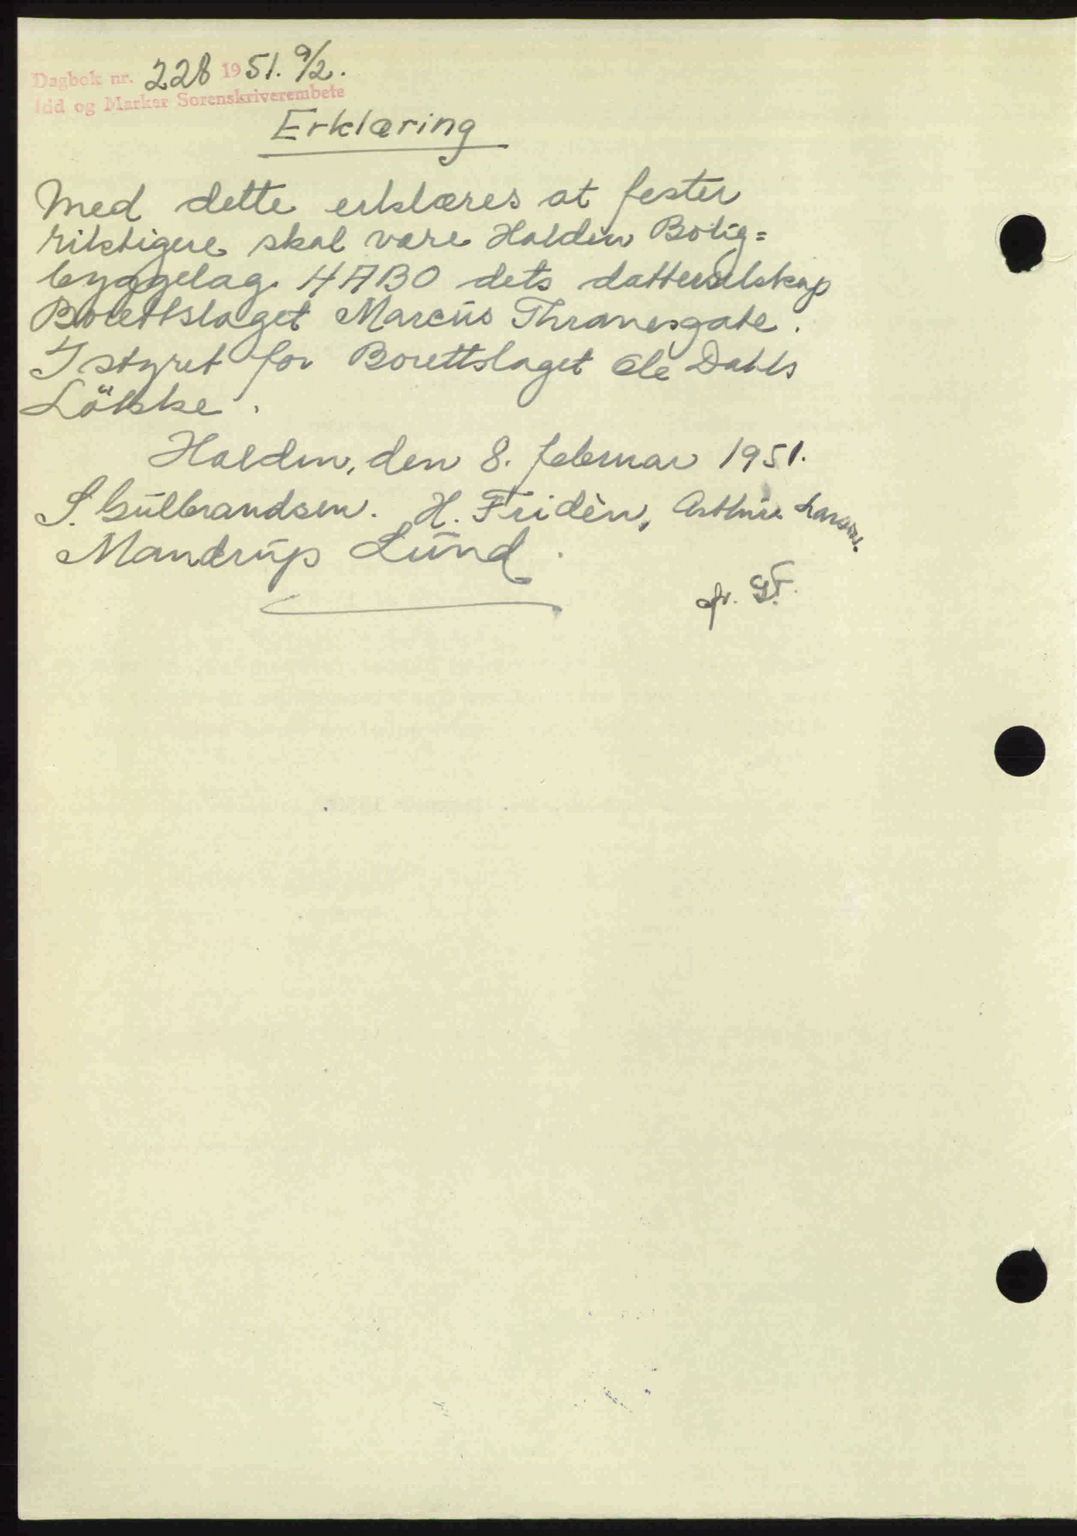 Dagbok nr. 228 1951. 9/2.
Idd og Marker Sorenskriverembete
Erklæring
Med dette erklæres at fester
riktigere skal være Halden Bolig=
byggelag HABO dets datterselskap
Borettslaget Marcus Thranesgate.
I styret for Borettslaget Ole Dahls
Løkke.
Halden, den 8. februar 1951.
S. Gulbrandsen. H. Fridèn, Arthur Larsen.
Mandrup Lund.